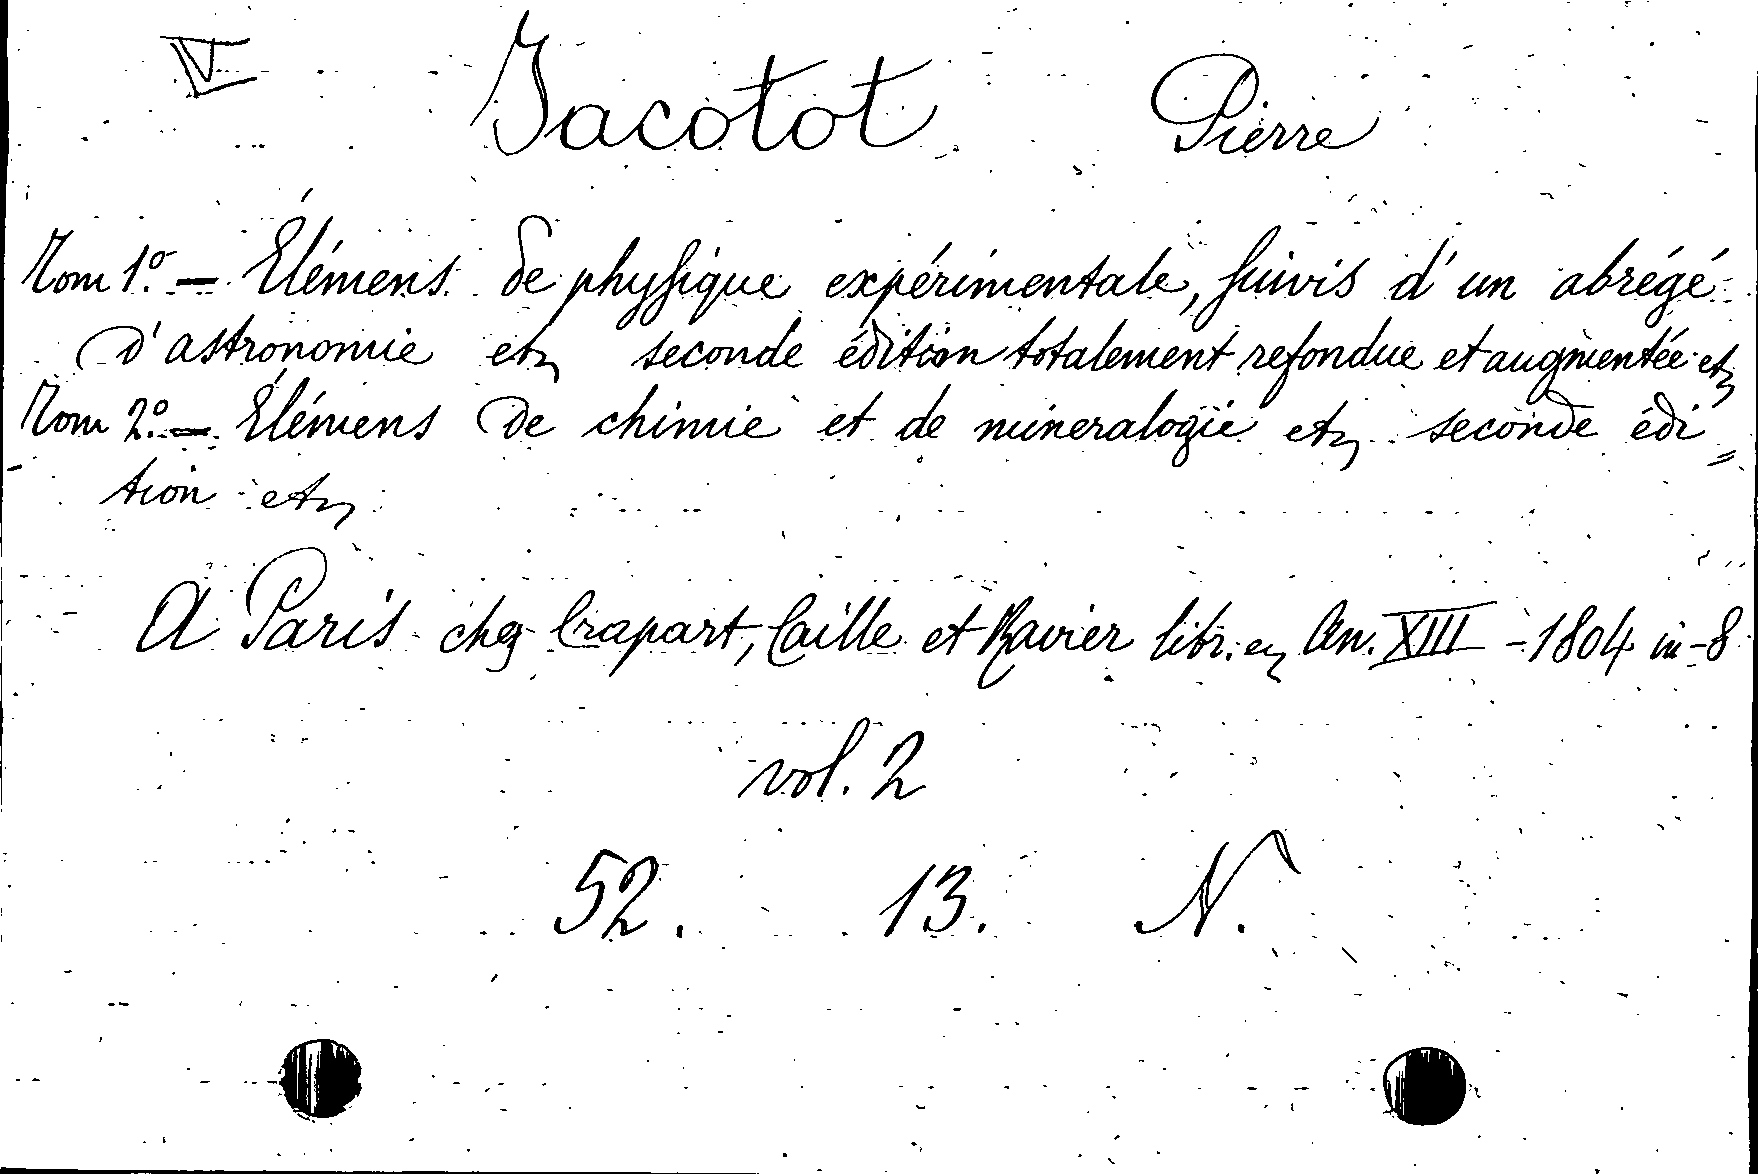 V Jacotot Pierre
Tom 1.º — Élémens de physique expérimentale, suivis d'un abrégé
d'astronomie etc seconde édition totalement refondue et augmentée etc
Tom 2.º — Élémens de chimie et de minéralogie etc seconde édi=
tion etc
A Paris chez Crapart, Caille et Ravier libr. en An. XIII - 1804 in-8
vol. 2
52. 13. N.